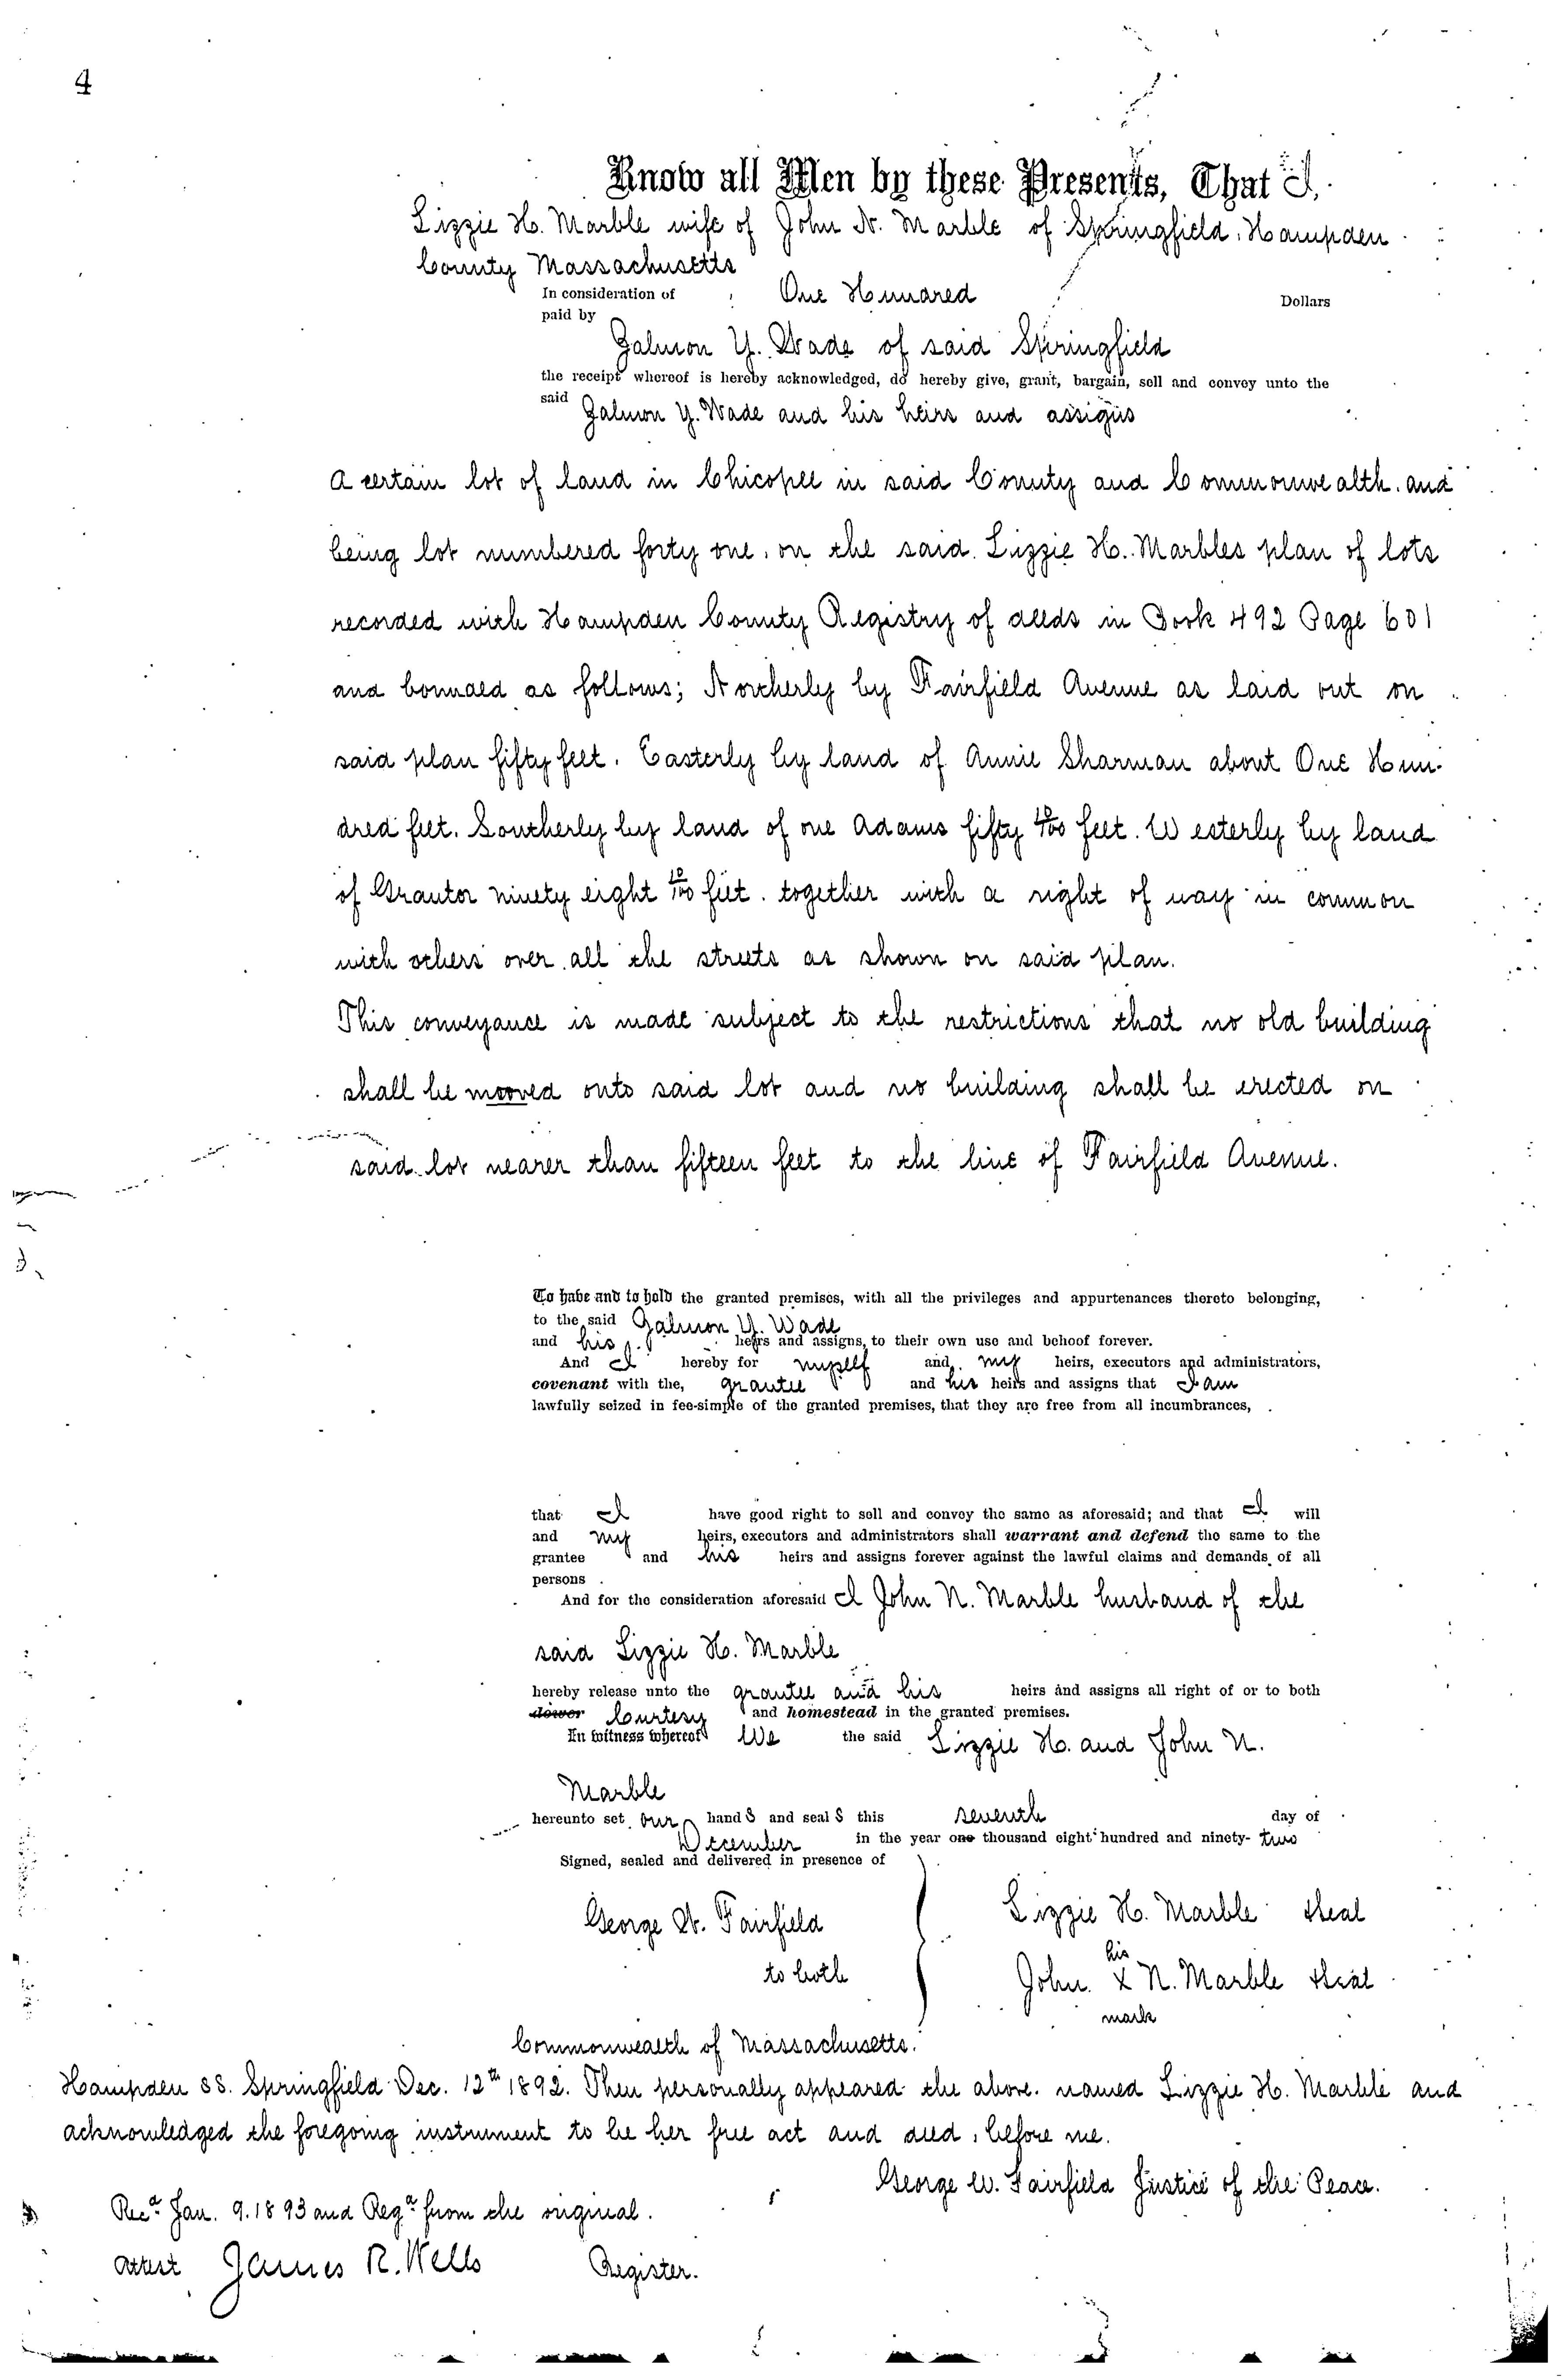 4
Know all Men by these Presents, That I,
Lizzie H. Marble wife of John N. Marble of Springfield, Hampden
County Massachusetts
In consideration of One Hundred Dollars
paid by
Zalmon Y. Wade of said Springfield
the receipt whereof is hereby acknowledged, do hereby give, grant, bargain, sell and convey unto the
said Zalmon Y. Wade and his heirs and assigns
A certain lot of land in Chicopee in said County and Commonwealth. and
being lot numbered forty one, on the said Lizzie H. Marbles plan of lots
recorded with Hampden County Registry of deeds in Book 492 Page 601
and bounded as follows; Northerly by Fairfield Avenue as laid out on
said plan fifty feet. Easterly by land of Annie Sharman about One Hun-
dred feet. Southerly by land of one Adams fifty feet. Westerly by land
of Grantor ninety eight 10/100 feet. together with a right of way in common
with others over all the streets as shown on said plan.
This conveyance is made subject to the restrictions that no old building
shall be mooved onto said lot and no building shall be erected on
said lot nearer than fifteen feet to the line of Fairfield Avenue.
To have and to hold the granted premises, with all the privileges and appurtenances thereto belonging,
to the said Zalmon Y. Wade
and his heirs and assigns, to their own use and behoof forever.
And I hereby for myself and my heirs, executors and administrators,
covenant with the, grantee and his heirs and assigns that I am
lawfully seized in fee-simple of the granted premises, that they are free from all incumbrances,
that I have good right to sell and convey the same as aforesaid; and that I will
and my heirs, executors and administrators shall warrant and defend the same to the
grantee and his heirs and assigns forever against the lawful claims and demands of all
persons
And for the consideration aforesaid I John N. Marble husband of the
said Lizzie H. Marble
hereby release unto the grantee and his heirs and assigns all right of or to both
dower Courtesy and homestead in the granted premises.
In witness whereof We the said Lizzie H. and John N.
Marble
hereunto set our hand s and seal s this seventh day of
December in the year one thousand eight hundred and ninety- two
Signed, sealed and delivered in presence of
George W. Fairfield Lizzie H. Marble Seal
to both his
John X N. Marble Seal
mark
Commonwealth of Massachusetts.
Hampden SS. Springfield Dec. 12th 1892. Then personally appeared the above. named Lizzie H. Marble and
acknowledged the foregoing instrument to be her free act and deed, before me.
George W. Fairfield Justice of the Peace.
Recd Jan. 9. 1893 and Regd from the original.
Attest James R. Wells Register.